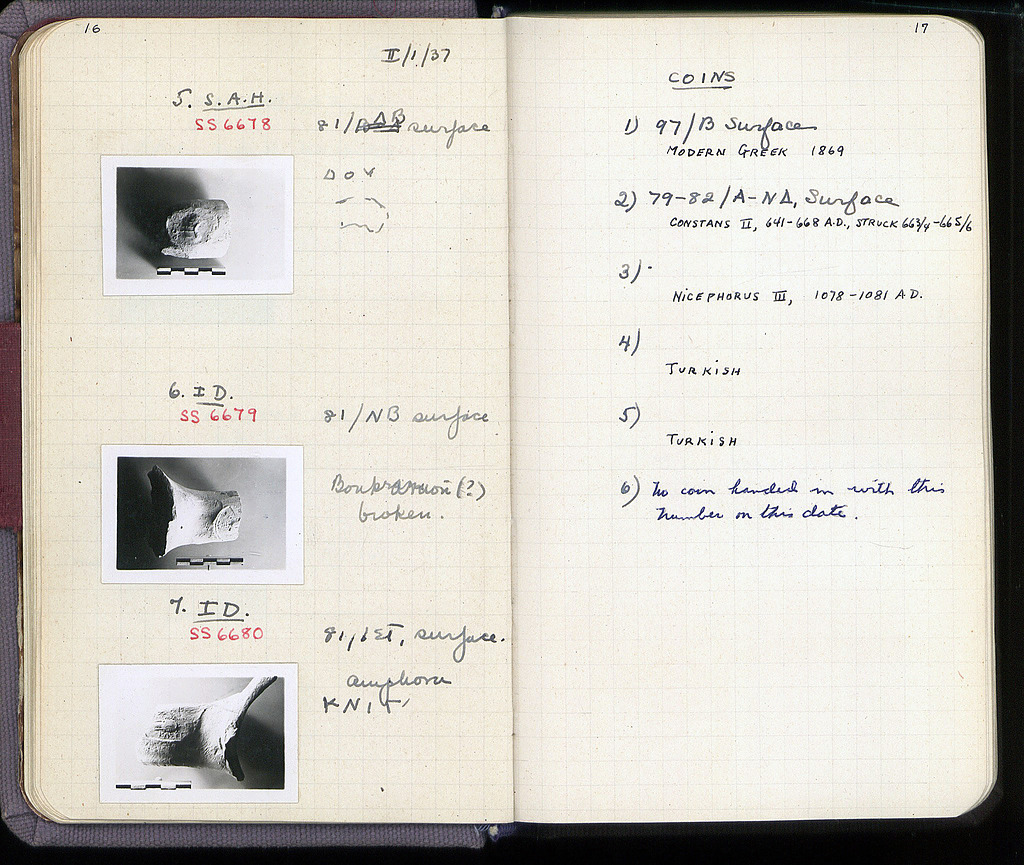 16
II/1/37
5. S.A.H.
SS 6678
81/ΔB surface
Δ O
6. ID.
SS 6679
81/NB surface
(?)
broken.
7. ID.
SS 6680
81/ surface.
amphora
KNI
17
COINS
1) 97/B Surface
MODERN GREEK 1869
2) 79-82/A-NΔ, Surface
CONSTANS II, 641-668 A.D., STRUCK 663/4-665/6
3)
NICEPHORUS III, 1078-1081 A.D.
4)
TURKISH
5)
TURKISH
6) No coin handed in with this
number on this date.